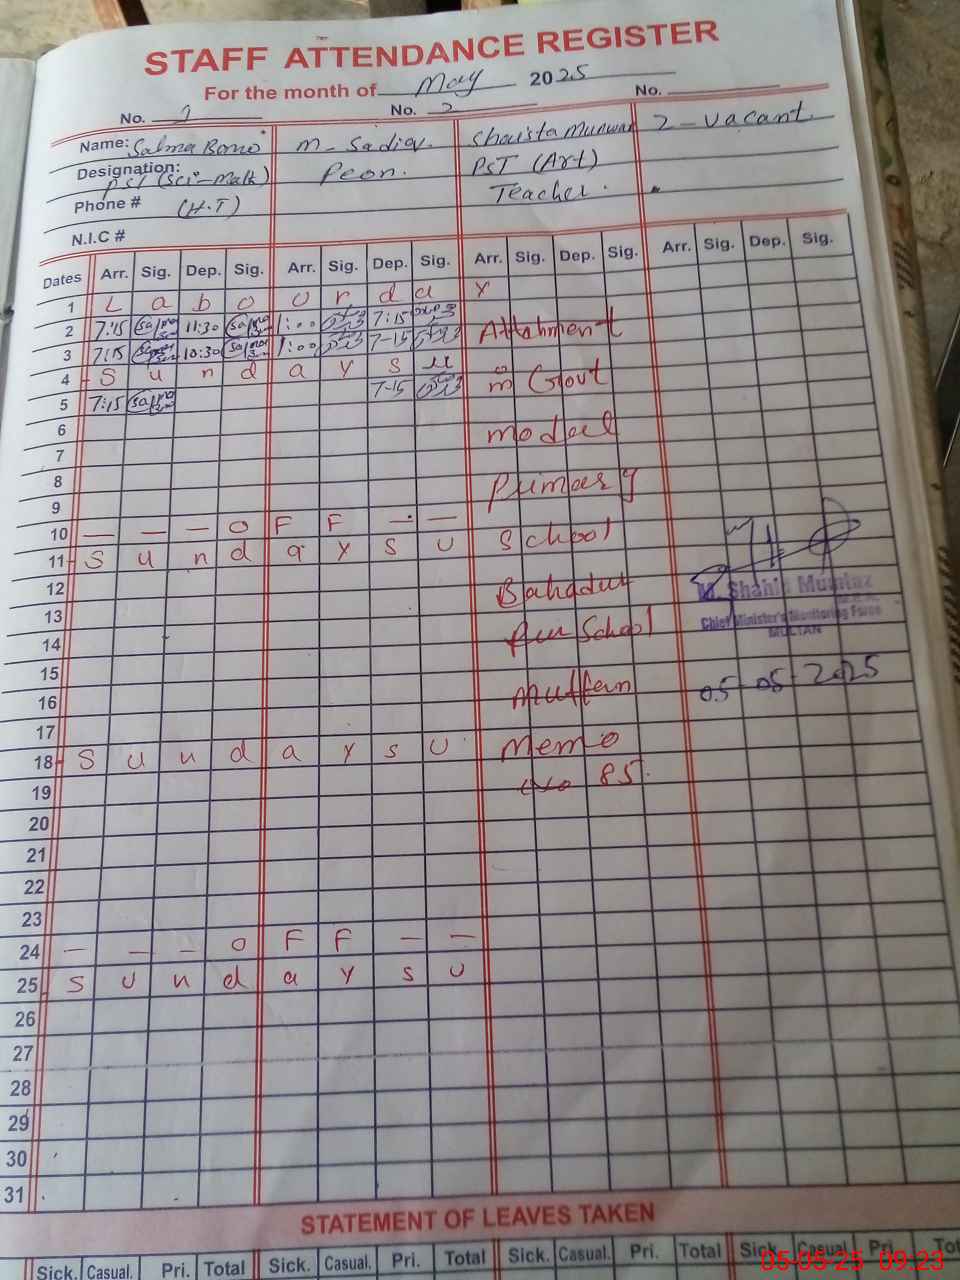 STAFF ATTENDANCE REGISTER
For the month of May 2025
No. 1 No. 2 No.
Name: Salma Bano M-Sadiq. Shaista Munwar 2-Vacant.
Designation: PST (Sci-Math) Peon. PST (Art)
Phone # (H.T) Teacher.
N.I.C #
Dates Arr. Sig. Dep. Sig. Arr. Sig. Dep. Sig. Arr. Sig. Dep. Sig. Arr. Sig. Dep. Sig.
1 L a b o u r d a y
2 7:15 Salma 11:30 Salma 1:00 7:15 Attahment
3 7:15 10:30 Salma 1:00 7-15
4 S u n d a y s u in Govt
5 7:15 Salma 7-15
6 model
7
8 Primary
9
10 — — — O F F — —
11 S u n d a y S U School
12 Bahadur
13 M. Shahid Mumtaz
Chief Minister's Monitoring Force
MULTAN
14 School
15
16 Multan 05-05-2025
17
18 S u n d a y s U Memo
19 No 85.
20
21
22
23
24 — — — O F F — —
25 S U n d a y s U
26
27
28
29
30
31
STATEMENT OF LEAVES TAKEN
Sick. Casual. Pri. Total Sick. Casual. Pri. Total Sick. Casual. Pri. Total Sick. Casual Pri.
05-05-25 09:23